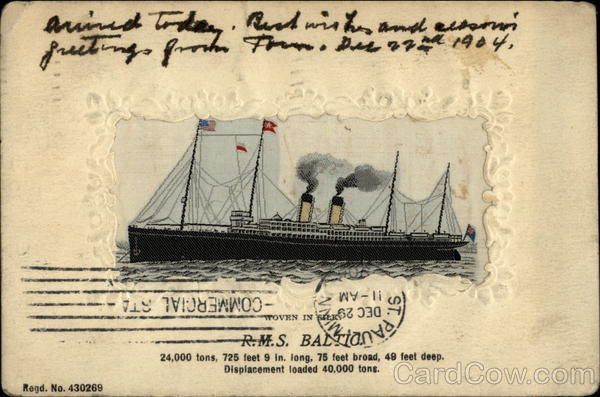 arrived today. Best wishes and season's
greetings from Tom. Dec 22nd 1904.
COMMERCIAL STA
ST. PAUL, MINN.
DEC 29
11-AM
WOVEN IN SILK
R.M.S. BALTIC
24,000 tons, 725 feet 9 in. long, 75 feet broad, 49 feet deep.
Displacement loaded 40,000 tons.
Regd. No. 430269
CardCow.com